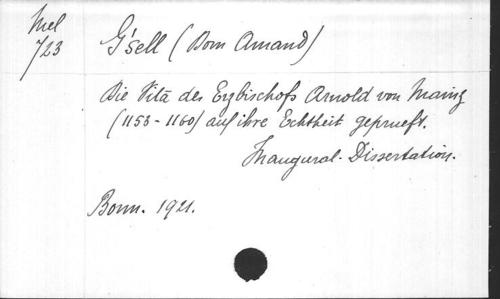 Mel
723
G'sell (Dom Amand)
Die Vita des Erzbischofs Arnold von Mainz
(1153-1160) auf ihre Echtheit geprueft.
Inaugural-Dissertation.
Bonn. 1921.